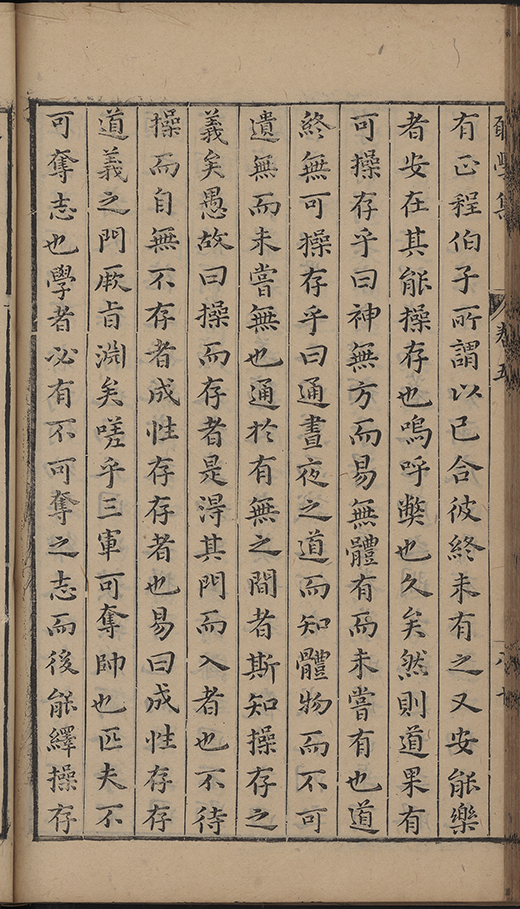 有正程伯子所謂以已合彼終未有之又安能樂
者安在其能操存也嗚呼弊也久矣然則道果有
可操存乎曰神無方而易無體有而未嘗有也道
終無可操存乎曰通晝夜之道而知體物而不可
遺無而未嘗無也通於有無之間者斯知操存之
義矣愚故曰操而存者是得其門而入者也不待
操而自無不存者成性存存者也易曰成性存存
道義之門厥旨淵矣嗟乎三軍可奪帥也匹夫不
可奪志也學者必有不可奪之志而後能繹操存